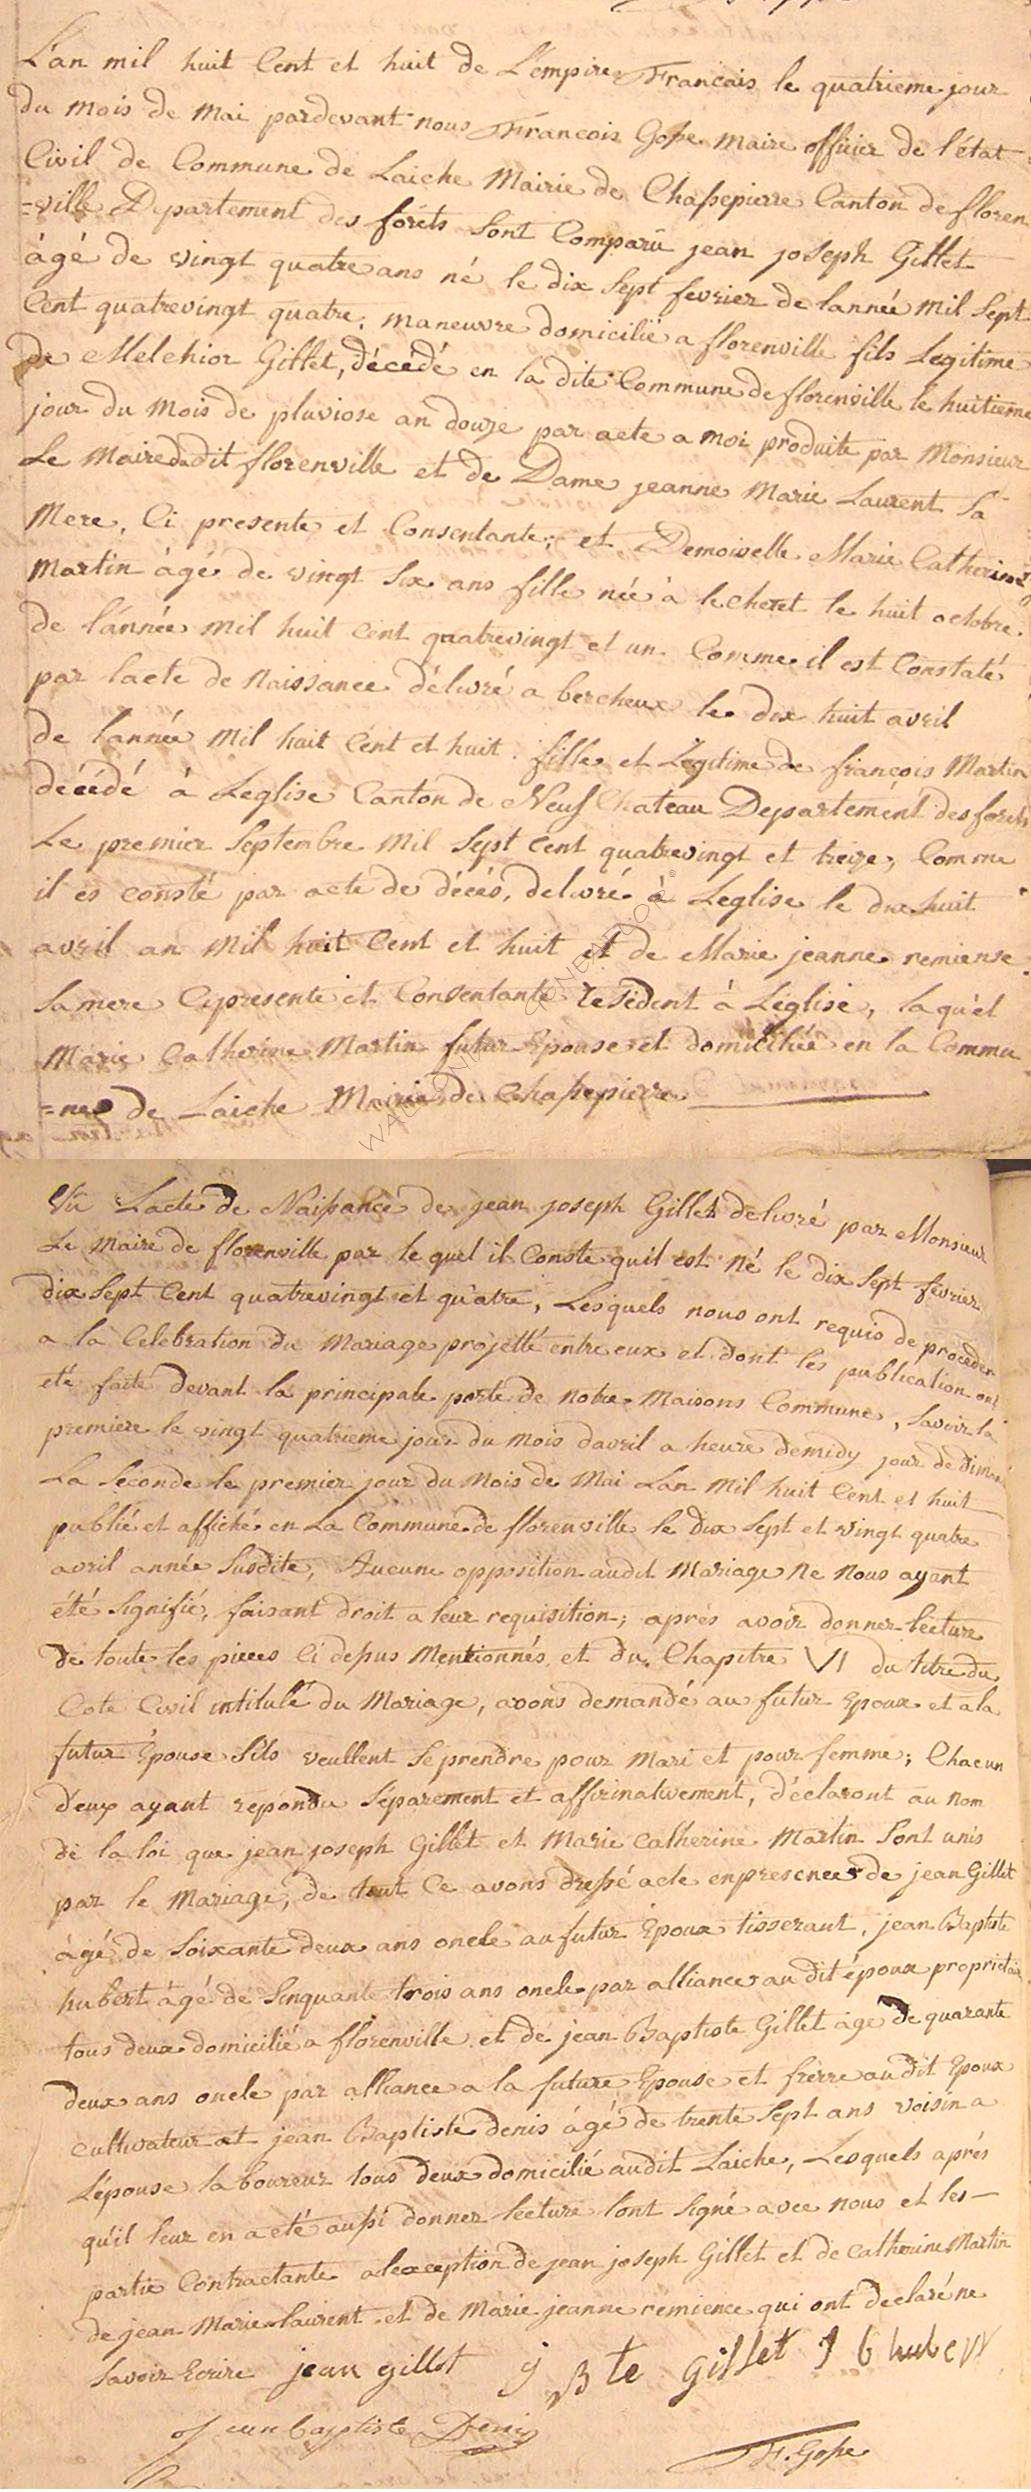 L'an mil huit Cent et huit de L'empire Francais le quatrieme jour
du mois de mai pardevant nous Francois Gosse maire officier de l'état
Civil de Commune de Laiche Mairie de Chassepierre Canton de floren
=ville Departement des foréts Sont Comparu jean joseph Gillet
àgé de vingt quatre ans né le dix Sept fevrier de lannée mil Sept
Cent quatrevingt quatre, maneuvre domicilié a florenville fils Legitime
de Melchior Gillet, décédé en la dite Commune de florenville le huitieme
jour du mois de pluviose an douze par acte a moi produite par Monsieur
Le Maire dudit florenville et de Dame jeanne Marie Laurent Sa
Mere, Ci presente et Consentante; et Demoiselle Marie Catherine
Martin àgé de vingt Six ans fille née à lecheret le huit octobre
de l'année mil huit Cent quatrevingt et un Comme il est Constaté
par lacte de Naissance délivré a bercheux le dix huit avril
de lannée Mil huit Cent et huit. fille et Légitime de françois Martin
décédé à Leglise Canton de Neuf Chateau Departement des foréts
Le premier Septembre Mil Sept Cent quatrevingt et treize, Comme
il es consté par acte de décés, delivré à Leglise le dix huit
avril an Mil huit Cent et huit et de Marie jeanne remiense
Sa mere Cypresente et Consentante résident à Léglise, laqu'el
Marie Catherine Martin futur Epouse et domiciliée en la Commu
=ne de Laiche Mairie de Chassepierre
Vu Lacte de Naissance de jean joseph Gillet delivré par Monsieur
Le Maire de florenville par le quel il Conste quil est Né le dix Sept fevrier
dix Sept Cent quatrevingt et quatre, Lesquels nous ont requis de proceder
a la Celebration du Mariage projetté entre eux et dont les publication ont
eté faite devant la principale porte de notre Maisons Commune, Savoir la
premiere le vingt quatrieme jour du Mois davril a heure demidy jour de diman
La Seconde le premier jour du Mois de Mai Lan Mil huit Cent et huit
publié et affiché en La Commune de florenville le dix Sept et vingt quatre
avril année Susdite, Aucune opposition audit Mariage Ne Nous ayant
été Signifié, faisant droit a leur requisition; aprés avoir donner lecture
de toute les pieces Ci depus Mentionnés et du Chapitre VI du titre du
Cote Civil intitulé du Mariage, avons demandé au futur Epoux et a la
futur Epouse Sils veullent Se prendre pour Mari et pour femme; Chacun
d'eux ayant repondu Séparement et affirmativement, déclaront au nom
de la loi que jean joseph Gillet et Marie Catherine Martin Sont unis
par le Mariage, de tout Ce avons dressé acte enpresence de jean Gillet
àgé de Soixante deux ans oncle au futur Epoux tisserant, jean Baptiste
hubert àgé de Sinquante trois ans oncle par alliance au dit époux proprietaire
tous deux domicilié a florenville et de jean Baptiste Gillet àgé de quarante
deux ans oncle par alliance a la future Epouse et frerre au dit Epoux
cultivateur et jean Baptiste denis àgé de trente Sept ans voisin a
L'épouse laboureur tous deux domicilié audit Laiche, Lesquels aprés
qu'il leur en a eté aussi donner lecture lont Signé avec nous et les
partie Contractante alexception de jean joseph Gillet et de Catherine Martin
de jean Marie Laurent et de Marie jeanne remience qui ont declaré ne
Savoir Ecrire jean gillet j B te gillet J b huber
jean baptiste Denis
F. Gosse